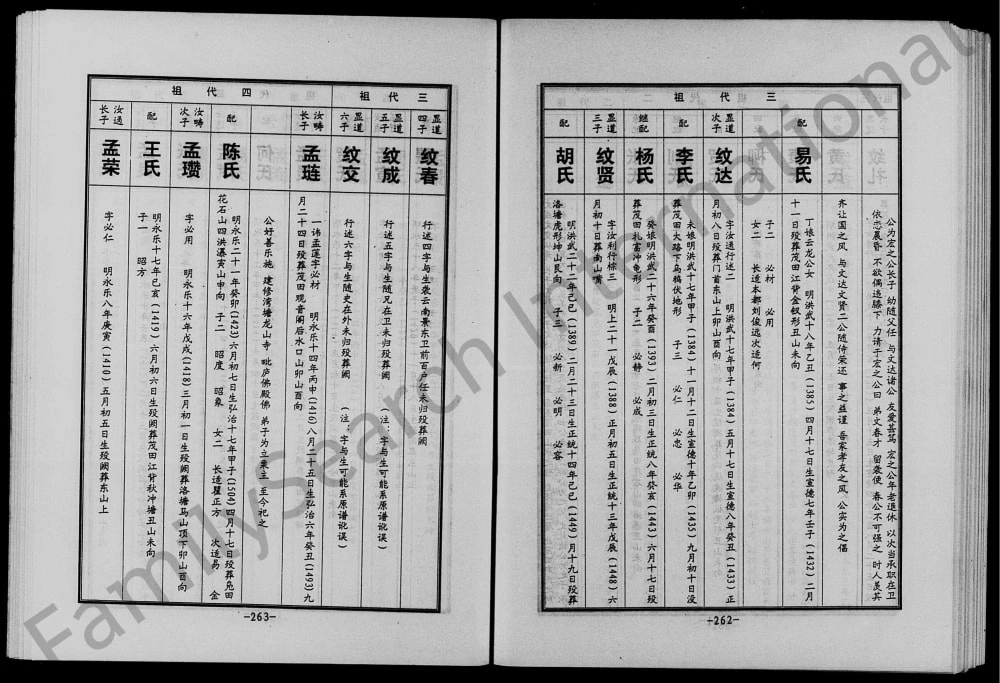 三代祖
公为宏之公长子 幼随父任 与文达诸公 友爱甚笃 宏之公年老退休 以次当承职在卫
依恋晨昏 不欲偶违膝下 力请于宏之公曰 弟文春才 留袭便 春公不可强之 时人莫其
齐让国之风 与文达文贤二公随侍荣还 事之益谨 吾家孝友之风 公实为之倡
配
易氏
丁娘云龙公女 明洪武十八年乙丑(1385)四月十七日生宣德七年壬子(1432)二月
十一日殁葬茂田江背金钗形丑山未向
子二 必材 必用
女二 长适本都刘俊远次适何
显道
次子
纹达
字汝通行述二 明洪武十七年甲子(1384)五月十七日生宣德八年癸丑(1433)正
月初八日殁葬门首东山上卯山酉向
配
李氏
未娘明洪武十七年甲子(1384)十一月十二日生宣德十年乙卯(1435)九月初十日没
葬茂田大路下乌龟伏地形 子三 必仁 必忠 必华
继配
杨氏
癸娘明洪武二十六年癸酉(1393)二月初三日生正统八年癸亥(1443)六月十七日殁
葬茂田礼富冲龟形 子二 必静 必成
显道
三子
纹贤
字汝利行行棕三 明上二十一戊辰(1388)正月初五日生正统十三年戊辰(1448)六
月初十日葬南山嘴
配
胡氏
明洪武二十二年己巳(1389)二月二十三日生正统十四年己巳(1449)月十九日殁葬
洛塘虎形坤山艮向 子三 必新 必明 必容
-262-
三代祖
显道
四子
纹春
行述四字与生袭云南景东卫前百户任未归殁葬阙
显道
五子
纹成
行述五字与生随兄在卫未归殁葬阙 (注:字与生可能系原谱讹误)
显道
六子
纹交
行述六字与生随史在外未归殁葬阙 (注:字与生可能系原谱讹误)
四代祖
汝畴
长子
孟琏
一讳孟莲字必材 明永乐十四年丙申(1416)八月二十五日生弘治六年癸丑(1493)九
月二十四日殁葬茂田观音阁后水口山卯山酉向
公好善乐施 建修湾塘龙山寺 毗庐佛殿佛 弟子为立栗主 至今祀之
配
陈氏
明永乐二十一年癸卯(1423)六月初七日生弘治十七年甲子(1504)四月十七日殁葬兔田
花石山四洪瀑寅山申向 子二 昭度 昭象 女二 长适瞿正方 次适易 金
汝畴
次子
孟瓒
字必用 明永乐十六年戊戌(1418)三月初一日生殁阙葬洛塘马山顶下卯山酉向
配
王氏
明永乐十七年己亥(1419)六月初六日生殁阙葬茂田江背秋冲塘丑山未向
子一 昭方
汝通
长子
孟荣
字必仁 明永乐八年庚寅(1410)五月初五日生殁阙葬东山上
-263-
FamilySearch International